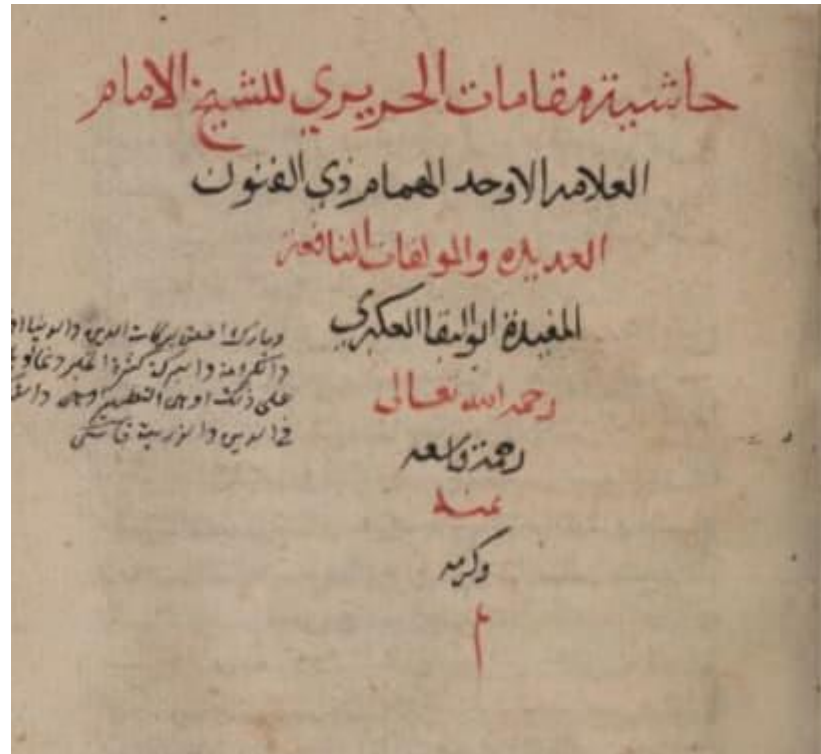 حاشية مقامات الحريري للشيخ الامام
العلامه الاوحد الهمام ذي الفنون
العديده والمولفات النافعة
المفيدة ابو البقا العكبري
رحمه الله تعالى
رحمة واسعه
بمنه
وكرمه
م
وبارك اصف بركات الدين والدنيا
والكرامة والبركة كثرة الخير
على ذلك او هي التطهير
في الدين والذرية